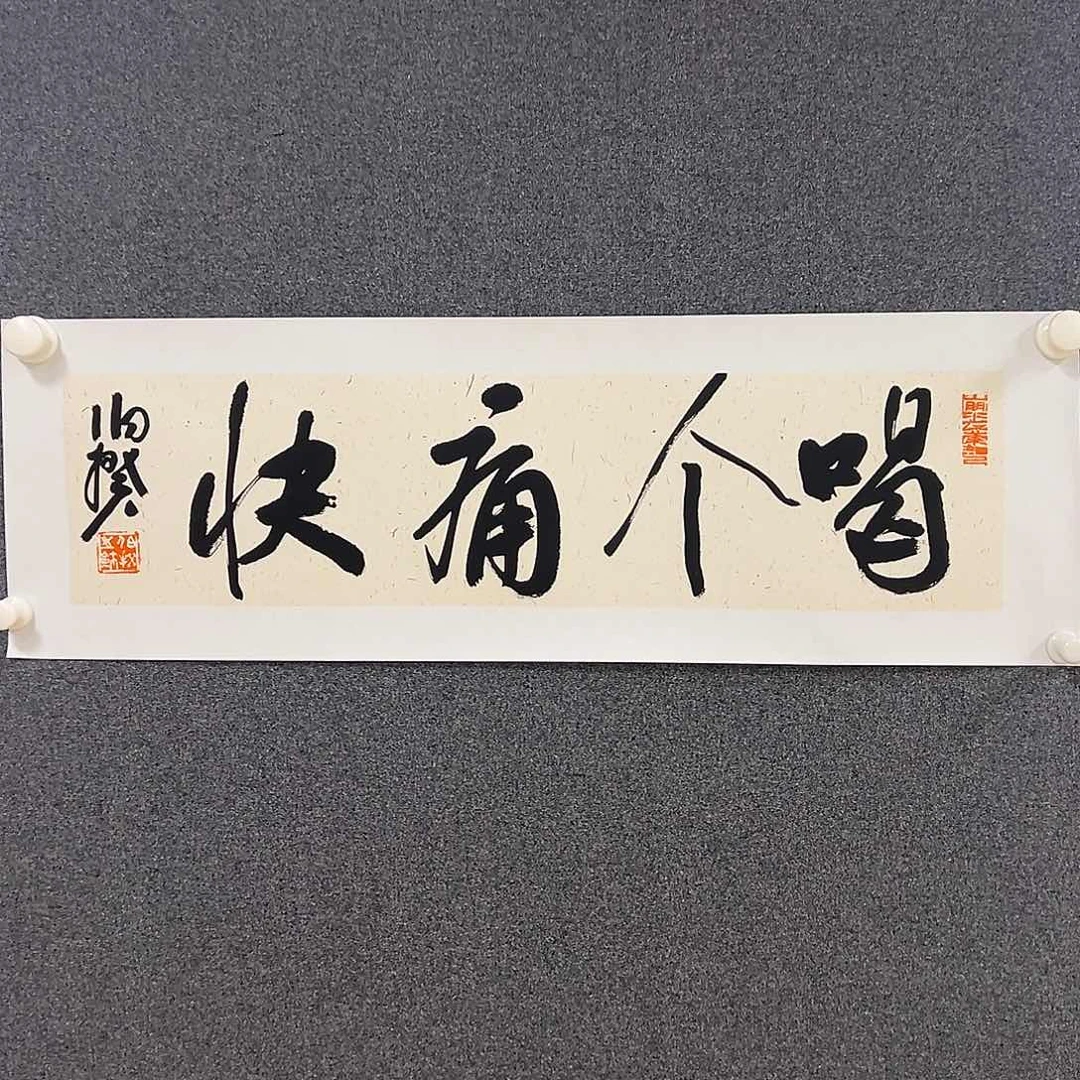 喝个痛快
伯揆